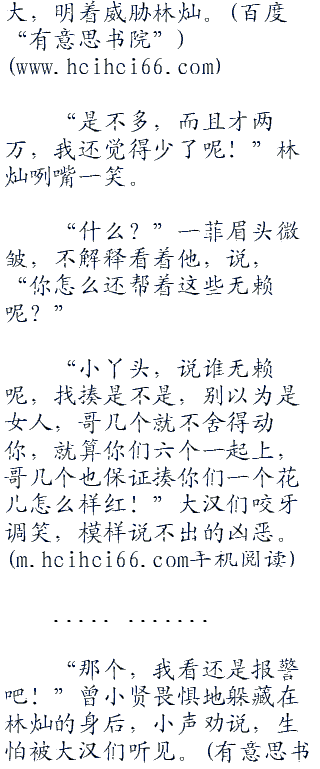 大，明着威胁林灿。(百度
“有意思书院”)
(www.hcihci66.com)
“是不多，而且才两
万，我还觉得少了呢！”林
灿咧嘴一笑。
“什么？”一菲眉头微
皱，不解释看着他，说，
“你怎么还帮着这些无赖
呢？”
“小丫头，说谁无赖
呢，找揍是不是，别以为是
女人，哥几个就不舍得动
你，就算你们六个一起上，
哥几个也保证揍你们一个花
儿怎么样红！”大汉们咬牙
调笑，模样说不出的凶恶。
(m.hcihci66.com手机阅读)
····· ·······
“那个，我看还是报警
吧！”曾小贤畏惧地躲藏在
林灿的身后，小声劝说，生
怕被大汉们听见。(有意思书